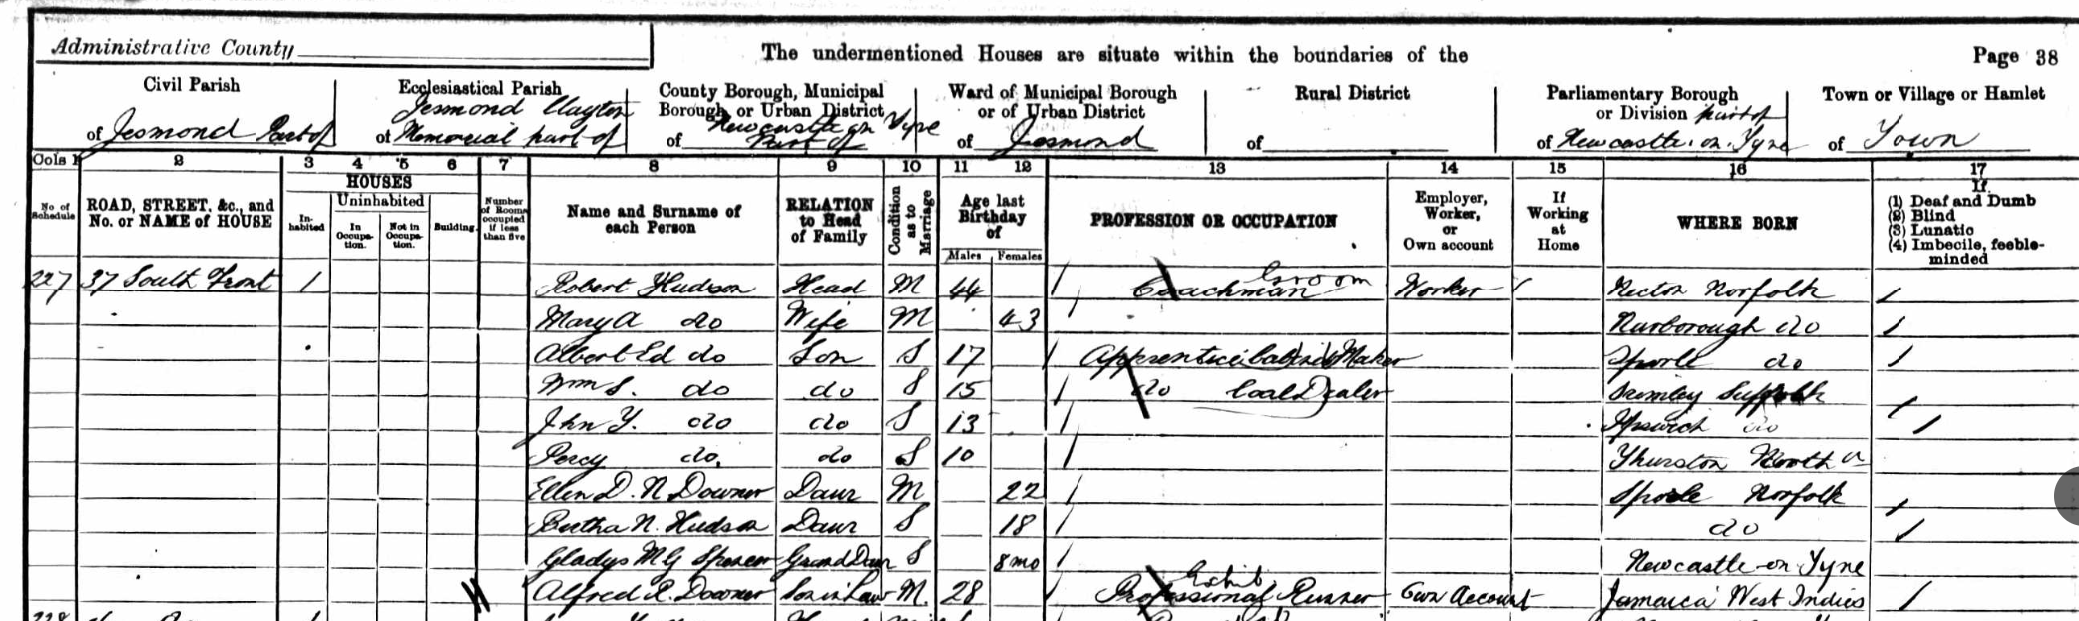 Administrative County
The undermentioned Houses are situate within the boundaries of the
Page 38
Civil Parish
of Jesmond Part of
Ecclesiastical Parish
Jesmond Clayton
of Memorial part of
County Borough, Municipal
Borough, or Urban District
Newcastle on Tyne
of Part of
Ward of Municipal Borough
or of Urban District
of Jesmond
Rural District
of
Parliamentary Borough
or Division part of
of Newcastle on Tyne
Town or Village or Hamlet
of Town
Cols 1 2 3 4 5 6 7 8 9 10 11 12 13 14 15 16 17
No of Schedule
ROAD, STREET, &c., and
No. or NAME of HOUSE
HOUSES
In-
habited
Uninhabited
In
Occupa-
tion.
Not in
Occupa-
tion.
Building.
Number
of Rooms
occupied
if less
than five
Name and Surname of
each Person
RELATION
to Head
of Family
Condition
as to
Marriage
Age last
Birthday
of
Males Females
PROFESSION OR OCCUPATION
Employer,
Worker,
or
Own account
If
Working
at
Home
WHERE BORN
If
(1) Deaf and Dumb
(2) Blind
(3) Lunatic
(4) Imbecile, feeble-
minded
Groom
227 37 South Front 1 Robert Hudson Head M 44 Coachman Worker Necton Norfolk
Mary A do Wife M 43 Narborough do
Albert Ed do Son S 17 Apprentice Cabinet Maker Sporle do
Wm S. do do S 15 do Coal Dealer Suffolk
John Y. do do S 13 Ipswich do
Percy do. do S 10 Thurston
Ellen D. N. Downer Daur M 22 Sporle Norfolk
Bertha N. Hudson Daur S 18 do
Gladys M G Grand Daur S 8 mo Newcastle on Tyne
Exhib
Alfred R. Downer Son in Law M. 28 Professional Runner Own Account Jamaica West Indies
228